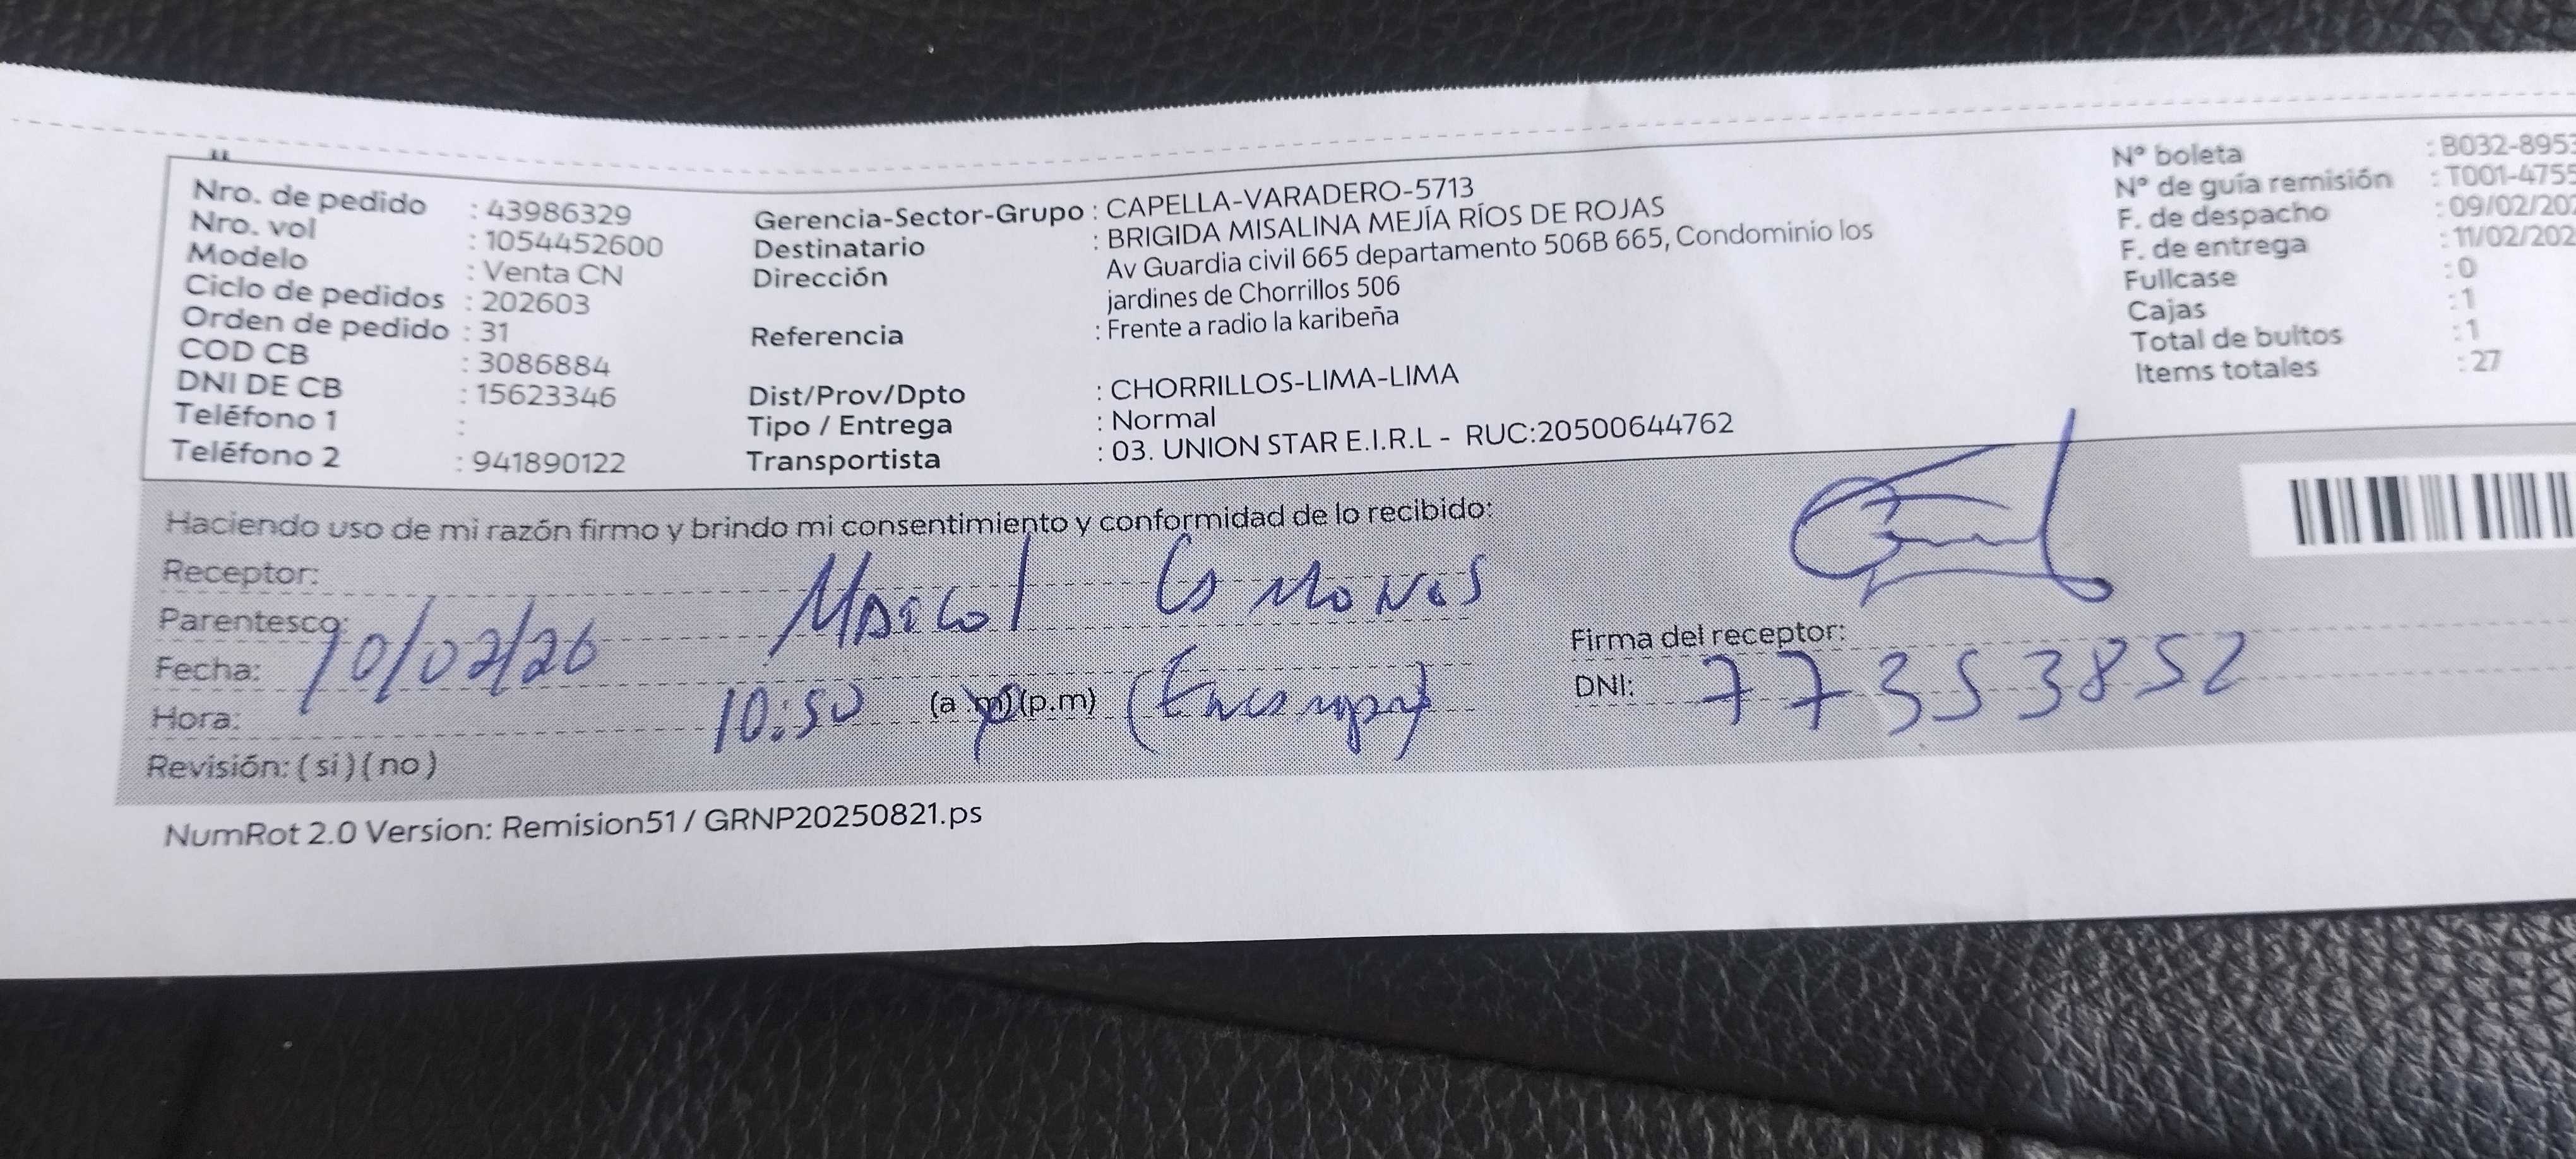 Nro. de pedido : 43986329
Nro. vol : 1054452600
Modelo : Venta CN
Ciclo de pedidos : 202603
Orden de pedido : 31
COD CB : 3086884
DNI DE CB : 15623346
Teléfono 1 :
Teléfono 2 : 941890122
Gerencia-Sector-Grupo : CAPELLA-VARADERO-5713
Destinatario : BRIGIDA MISALINA MEJÍA RÍOS DE ROJAS
Dirección : Av Guardia civil 665 departamento 506B 665, Condominio los
jardines de Chorrillos 506
Referencia : Frente a radio la karibeña
Dist/Prov/Dpto : CHORRILLOS-LIMA-LIMA
Tipo / Entrega : Normal
Transportista : 03. UNION STAR E.I.R.L - RUC:20500644762
Nº boleta : B032-8953
Nº de guía remisión : T001-4755
F. de despacho : 09/02/202
F. de entrega : 11/02/202
Fullcase : 0
Cajas : 1
Total de bultos : 1
Items totales : 27
Haciendo uso de mi razón firmo y brindo mi consentimiento y conformidad de lo recibido:
Receptor:
Parentesco:
Fecha: 10/02/26
Hora: 10:50 (a.m)(p.m)
Firma del receptor:
DNI: 77353852
Revisión: ( si ) ( no )
NumRot 2.0 Version: Remision51 / GRNP20250821.ps